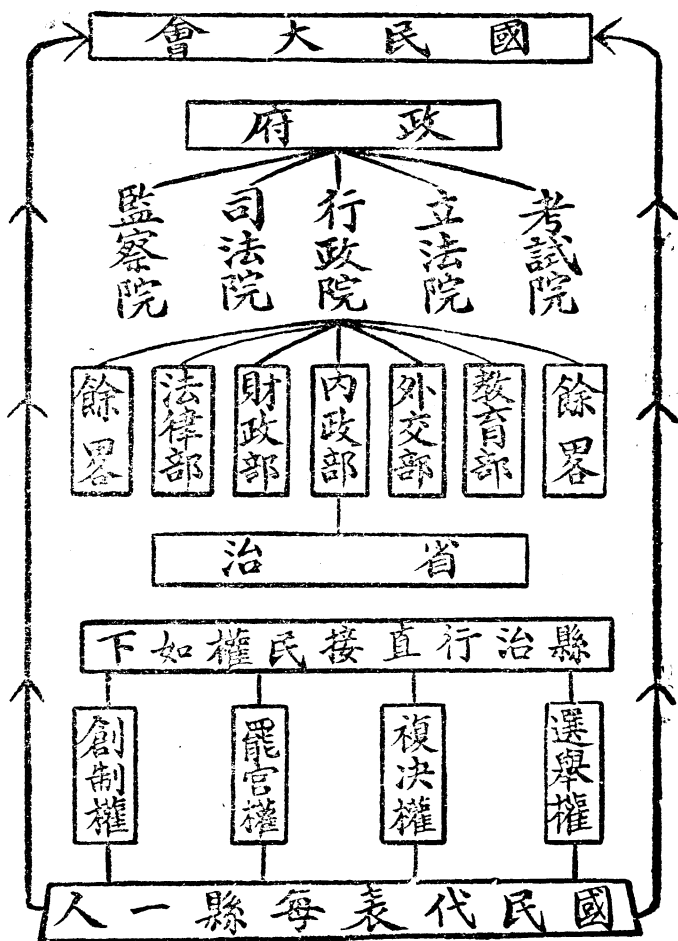 國民大會
政府
考試院
立法院
行政院
司法院
監察院
餘畧
教育部
外交部
内政部
財政部
法律部
餘畧
省治
縣治行直接民權如下
選舉權
複决權
罷官權
創制權
國民代表每縣一人